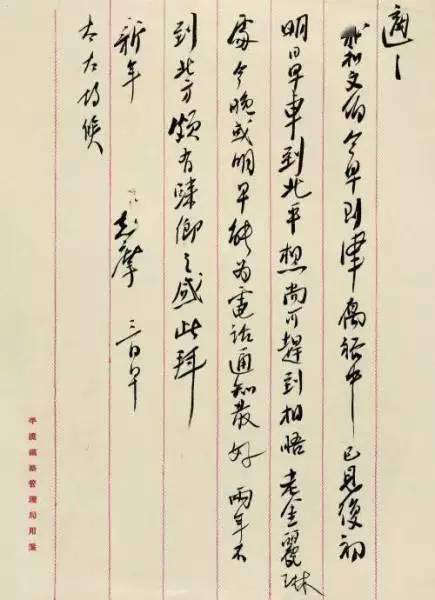 適之
我和文伯今早到津寓裕中 已見復初
明日早車到北平想尚可趕到相晤 老金麗琳
處今晚或明早能為電話通知最好 兩年不
到北方頗有鄉之感此拜
新年 志摩 三日早
太太均候
平漢鐵路管理局用箋